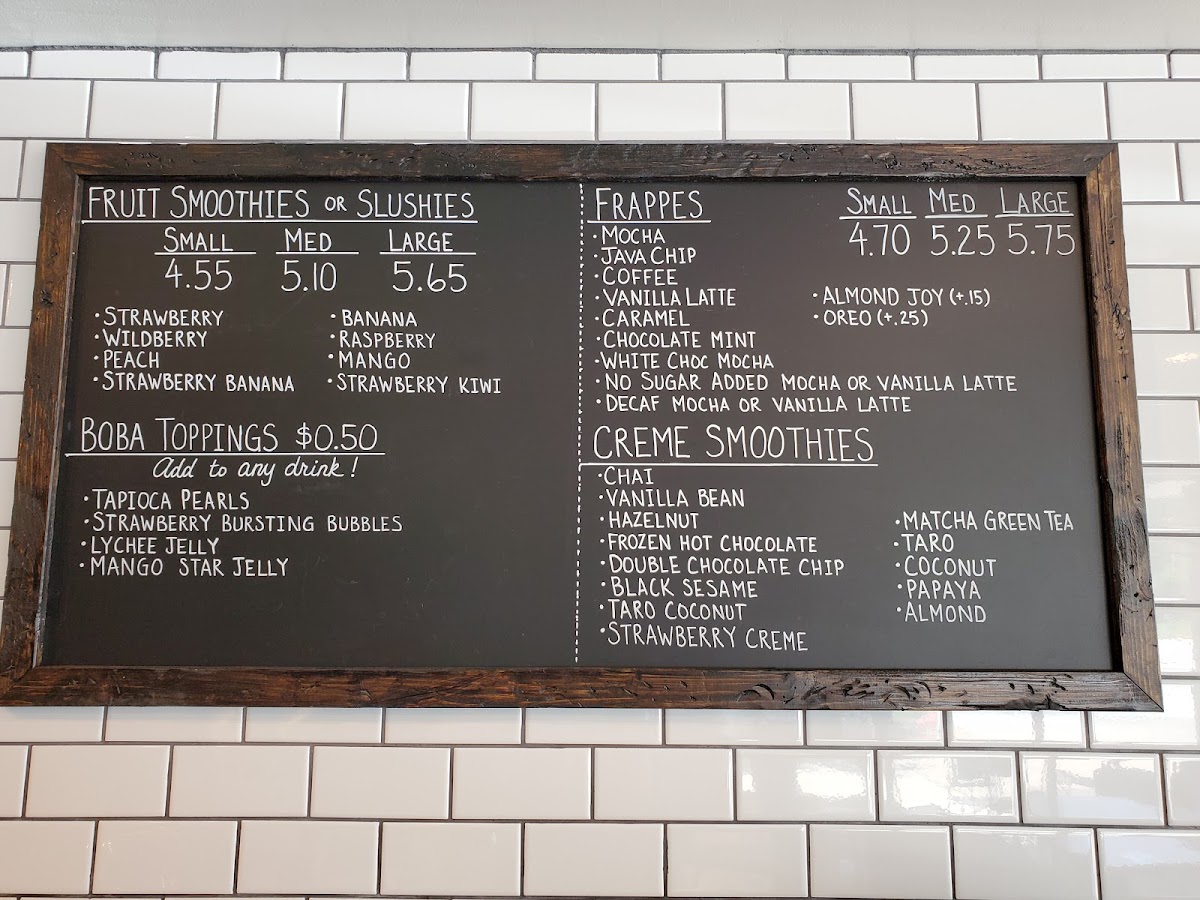 FRUIT SMOOTHIES OR SLUSHIES
SMALL MED LARGE
4.55 5.10 5.65
• STRAWBERRY
• WILDBERRY
• PEACH
• STRAWBERRY BANANA
• BANANA
• RASPBERRY
• MANGO
• STRAWBERRY KIWI
BOBA TOPPINGS $0.50
Add to any drink!
• TAPIOCA PEARLS
• STRAWBERRY BURSTING BUBBLES
• LYCHEE JELLY
• MANGO STAR JELLY
FRAPPES
SMALL MED LARGE
4.70 5.25 5.75
• MOCHA
• JAVA CHIP
• COFFEE
• VANILLA LATTE
• CARAMEL
• CHOCOLATE MINT
• WHITE CHOC MOCHA
• NO SUGAR ADDED MOCHA OR VANILLA LATTE
• DECAF MOCHA OR VANILLA LATTE
• ALMOND JOY (+.15)
• OREO (+.25)
CREME SMOOTHIES
• CHAI
• VANILLA BEAN
• HAZELNUT
• FROZEN HOT CHOCOLATE
• DOUBLE CHOCOLATE CHIP
• BLACK SESAME
• TARO COCONUT
• STRAWBERRY CREME
• MATCHA GREEN TEA
• TARO
• COCONUT
• PAPAYA
• ALMOND